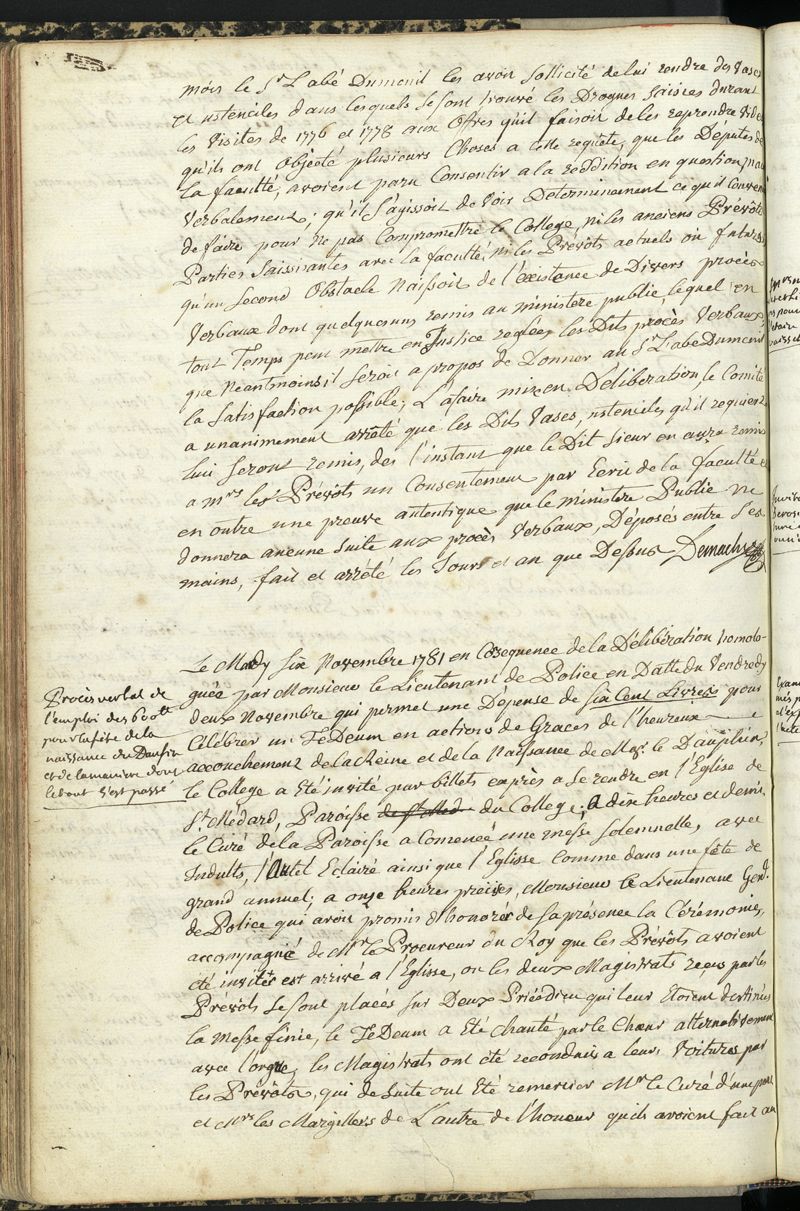 mois le Sr L'abé Dumenil les avoit Sollicité de lui rendre des Vases
et ustenciles dans lesquels se sont trouvé les Drogues Saisies durant
les Visites de 1776 et 1778 aux Offres qu'il faisoit de les reprendre Vides
qu'ils ont objecté plusieurs Choses a cette requête, que les Députés de
la faculté, avoient paru Consentir a la reddition en question, mais
Verbalement; qu'il s'agissoit de Voir Determinement ce qu'il Convenoit
de faire pour ne pas Compromettre le College, ni les anciens Prévôts
Parties Saisissantes avec la faculté, ni les Prévôts actuels ou futurs
qu'un Second Obstacle Naissoit de l'éxistence de Divers procès
Verbaux dont quelques uns remis au ministere public, lequel en
tout Temps peut mettre en Justice reglée les Dits procès Verbaux,
que Neantmoins il seroit a propos de Donner au Sr L'abé Dumenil
la Satisfaction possible, L'afaire mize en Déliberation, le Comité
a unanimement arrêté que les Dits Vases, ustenciles qu'il requiert
lui Seront remis, des l'instant que le Dit Sieur en aura remis
a mrs les Prévôts un Consentement par Ecrit de la faculté et
en outre une preuve autentique que le ministere Public ne
donnera aucune Suite aux procès Verbaux, Déposés entre Ses
mains, fait et arrêté les Jours et an que Dessus Demachy
Procès verbal de
l'emploi des 600tt
pour la fête de la
naissance du Daufin
et de la maniere dont
le tout s'est passé
Le Mardy Six Novembre 1781 en Consequence de la Délibération homolo-
guée par Monsieur le Lieutenant de Police en Datte du Vendredy
deux Novembre qui permet une Dépense de Six Cent Livres pour
Célébrer un Te Deum en actions de Graces de l'heureux
accouchement de la Reine et de la Naissance de Mgr. le Dauphin,
le College a Eté invité par billets exprès a se rendre en l'Eglise de
St. Médard, Paroisse de St Med. du College; A dix heures et demie
le Curé de la Paroisse a Comencé une messe Solemnelle, avec
Indults, l'Autel Eclairé ainsi que l'Eglisse Comme dans une fête de
grand annuel; a onze heures precises, Monsieur le Lieutenant Genl.
de Police qui avoit promis d'honorér de sa présence la Cérémonie,
accompagné de Mr. le Procureur du Roy que les Prévôts avoient
été invités est arrivé a l'Eglisse, ou les deux Magistrats recus par les
Prévôts se sont placés sur Deux Priédieu qui leur Etoient destinées
la Messe finie, le TeDeum a Eté chanté par le Chœur alternativement
avec l'orgue, les Magistrats ont été reconduis a leurs Voitures par
les Prévôts, qui de Suite ont Eté remercier Mr. le Curé d'une part
et Mrs les Margilliers de L'autre de l'honeur qu'ils avoient fait au